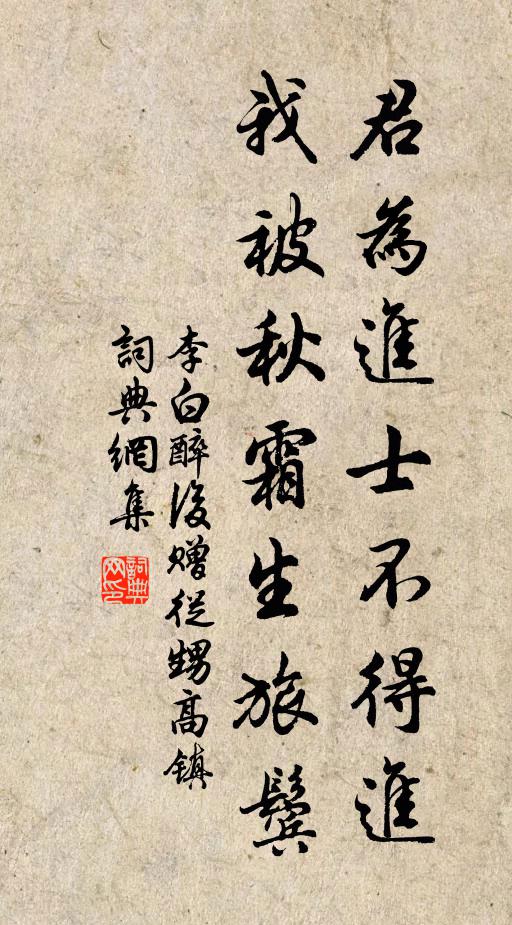 君為進士不得進
我被秋霜生旅鬢
李白醉後贈從甥高鎮
詞典網集
詞典網印